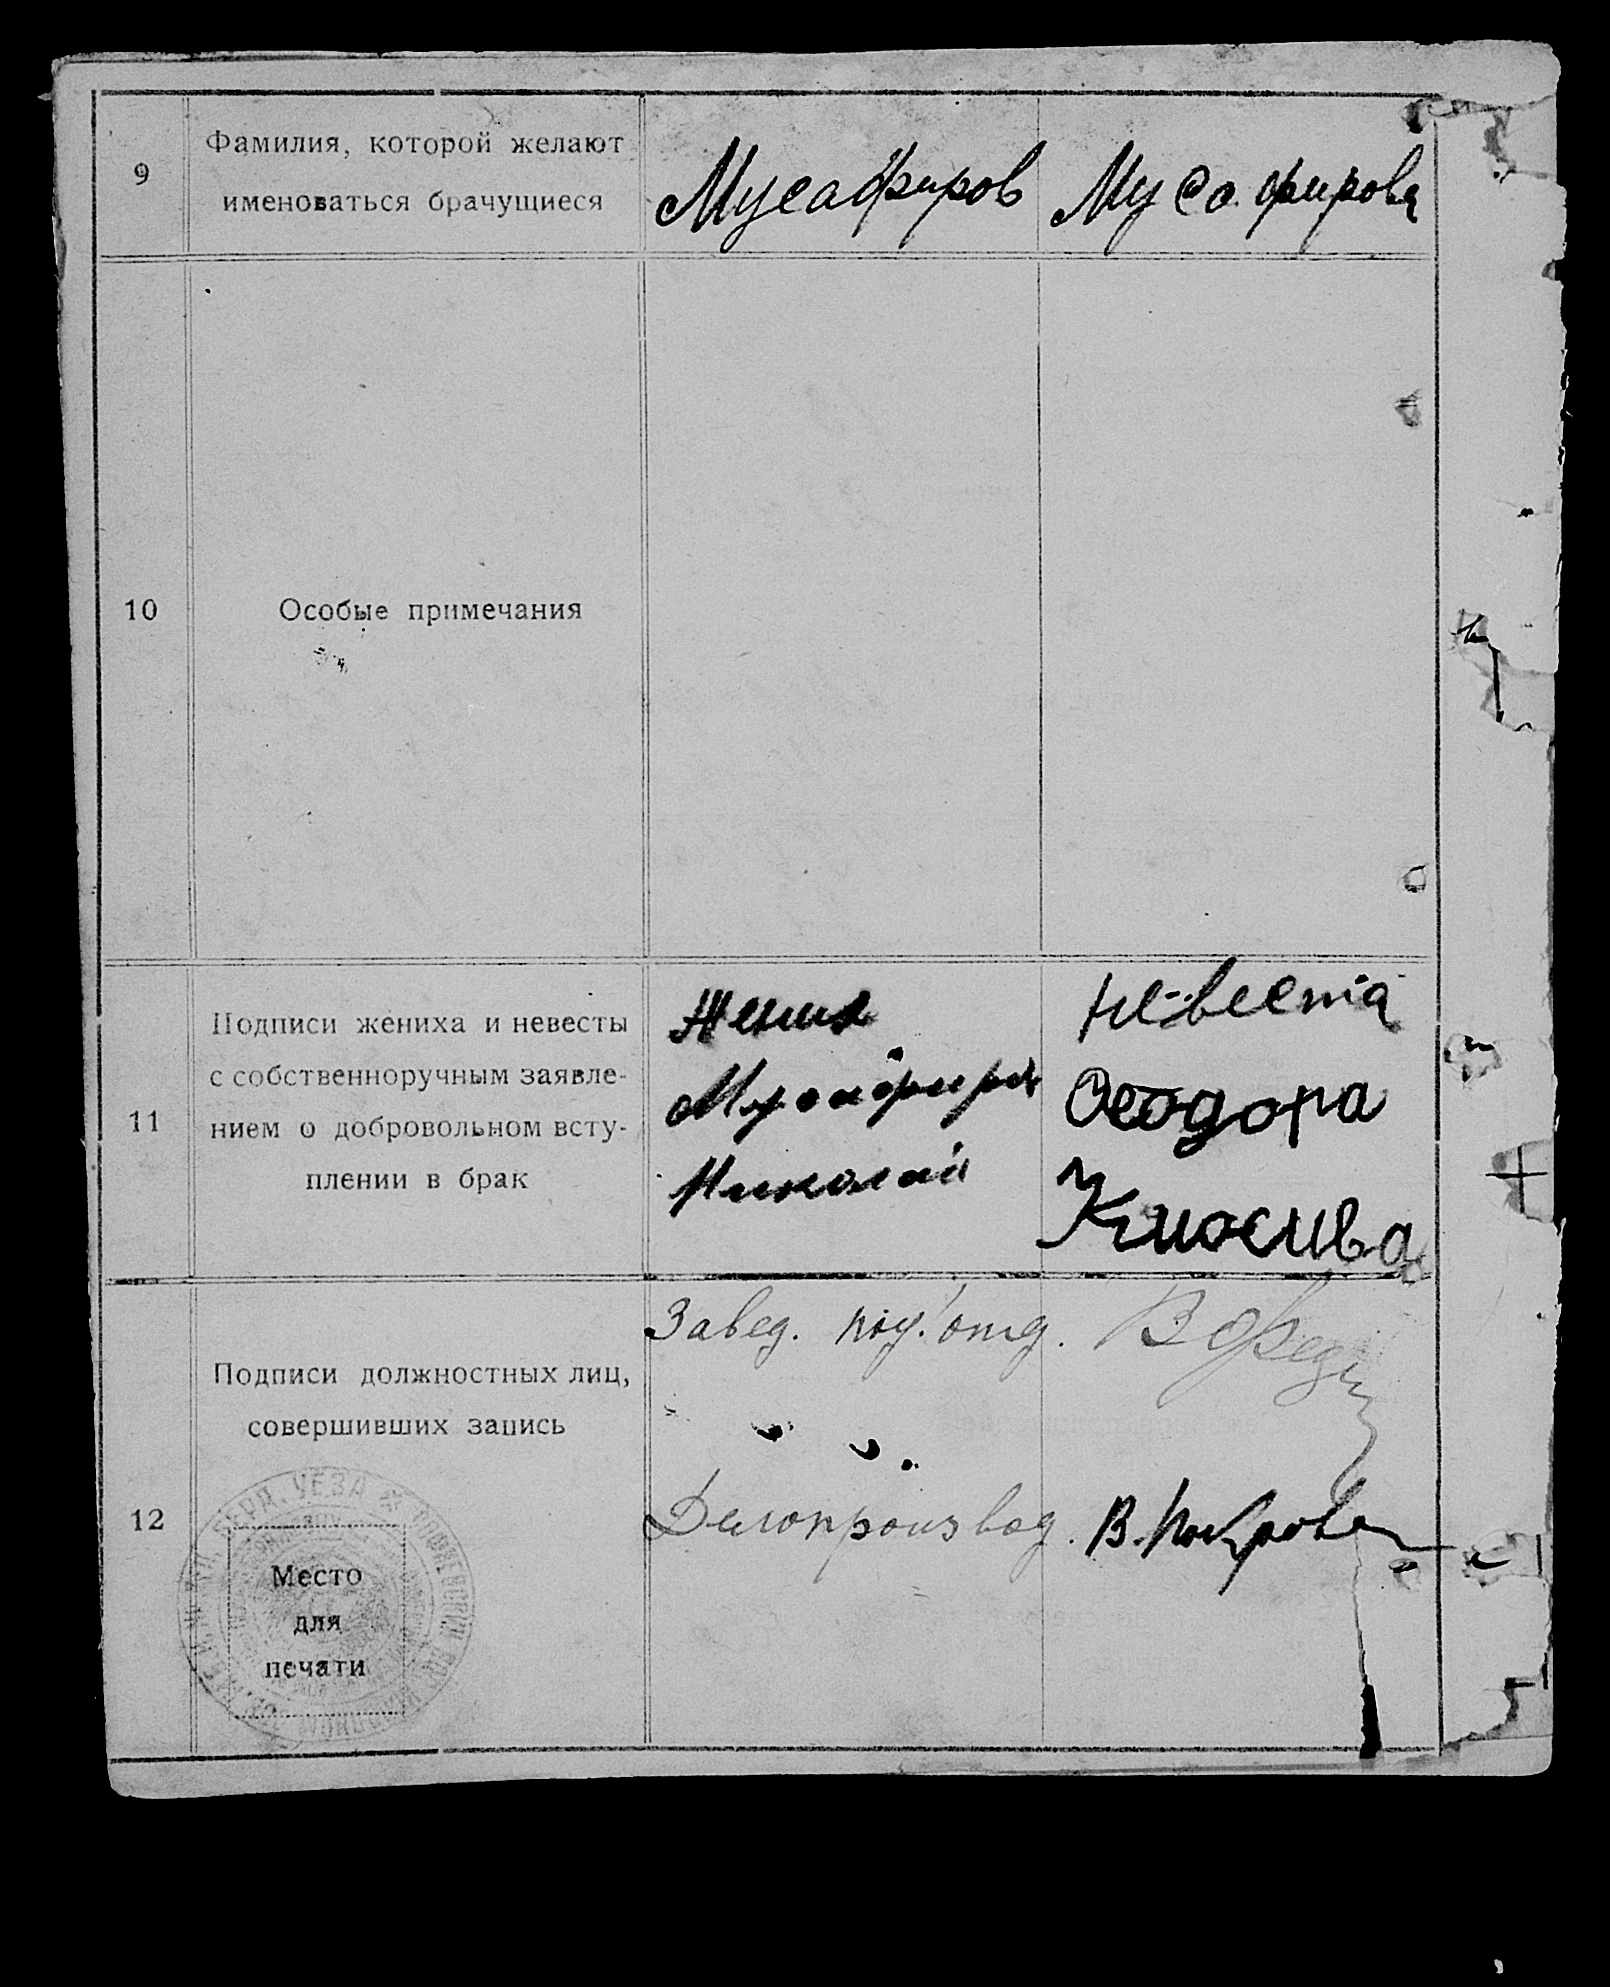 9
Фамилия, которой желают
именоваться брачущиеся
Мусафиров
Мусафирова
10
Особые примечания
11
Подписи жениха и невесты
с собственноручным заявле-
нием о добровольном всту-
плении в брак
Жених
Мусафиров
Николай
Невеста
Феодора
Киосива
12
Подписи должностных лиц,
совершивших запись
Завед. под. отд.
Делопроизвод.
В. Покров
Место
для
печати